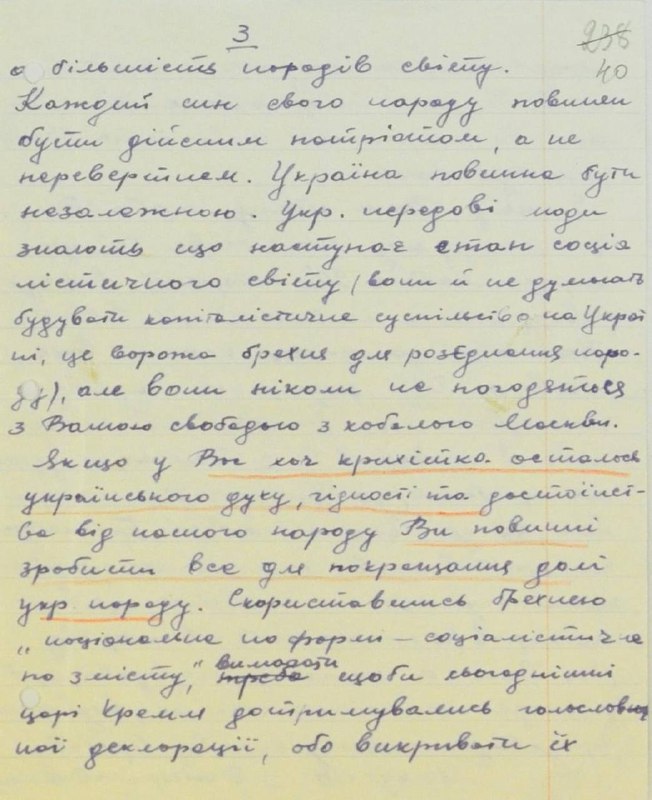 3
238
40
а більшість народів світу.
Каждий син свого народу повинен
бути дійсним патріотом, а не
перевертнем. Україна повинна бути
незалежною. Укр. передові люди
знають що наступає стан соція
лістичного світу (вони й не думають
будувати капіталістичне суспільство на Украї
ні, це ворожа брехня для розєднання наро-
ду), але вони ніколи не погодяться
з Вашою свободою з кобелого Москви.
Якщо у Вас хоч крихістка осталось
українського духу, гідності та достоїнст-
ва від нашого народу Ви повинні
зробити все для покращання долі
укр народу. Скориставшись брехнею
"національна по формі – соціалістична
по змісту," вимагати
треба щоби сьогоднішні
царі Кремля дотримувались голослов
ної декларації, або викривати їх